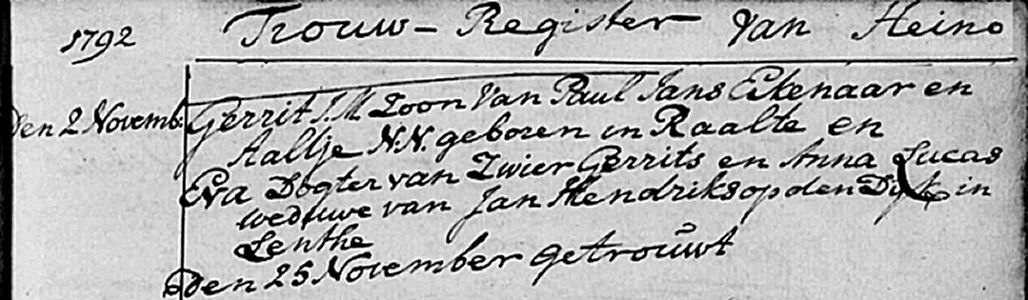 1792 Trouw-Register Van Heino
den 2 Novemb: Gerrit J.M. Zoon Van Paul Jans Ekenaar en
Aaltje N.N. geboren in Raalte en
Eva Dogter van Zwier Gerrits en Anna Lucas
weduwe van Jan Hendriks op den Dyk in
Lenthe
den 25 November getrouwt